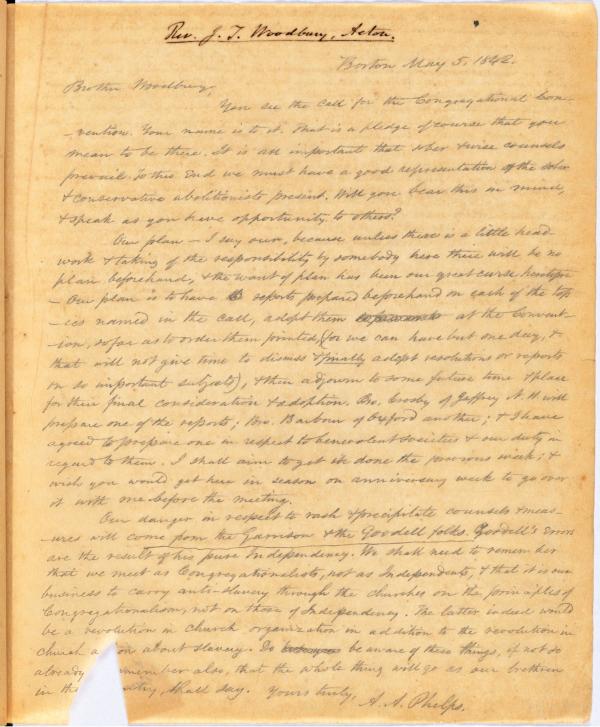 Rev. J. T. Woodbury, Acton.
Boston May 5, 1842.
Brother Woodbury,
You see the call for the Congregational Con-
-vention. Your name is to it. That is a pledge of course that you
mean to be there. It is all important that sober & wise counsels
prevail. To this End we must have a good representation of the sober
& conservative abolitionists present. Will you bear this in mind,
& speak as you have opportunity to others?
Our plan – I say our, because unless there is a little head-
work & taking of the responsibility by somebody here there will be no
plan beforehand, & the want of plan has been our great curse heretofore
– Our plan is to have reports prepared beforehand on each of the top-
-ics named in the call, adopt them at the Convent-
-ion, so far as to order them printed, (for we can have but one day, &
that will not give time to discuss & finally adopt resolutions or reports
on so important subjects), & then adjourn to some future time & place
for their final consideration & adoption. Bro. Crosby of Jaffrey N. H. will
prepare one of the reports; Bro. Barbour of Oxford another; & I have
agreed to prepare one in respect to benevolent societies & our duty in
regard to them. I shall aim to get it done the previous week; &
wish you would get here in season on anniversary week to go over
it with me before the meeting.
Our danger in respect to rash & precipitate counsels & meas-
ures will come from the Garrison & the Goodell folks. Goodell's Errors
are the result of his pure Independency. We shall need to remember
that we meet as Congregationalists, not as Independents, & that it is our
business to carry anti-slavery through the churches on the principles of
Congregationalism, not on those of Independency. The latter indeed would
be a revolution in church organization in addition to the revolution in
church about slavery. Do be aware of these things, if not so
already also, that the whole thing will go as our brethren
in the shall say. Yours truly,
A. A. Phelps.